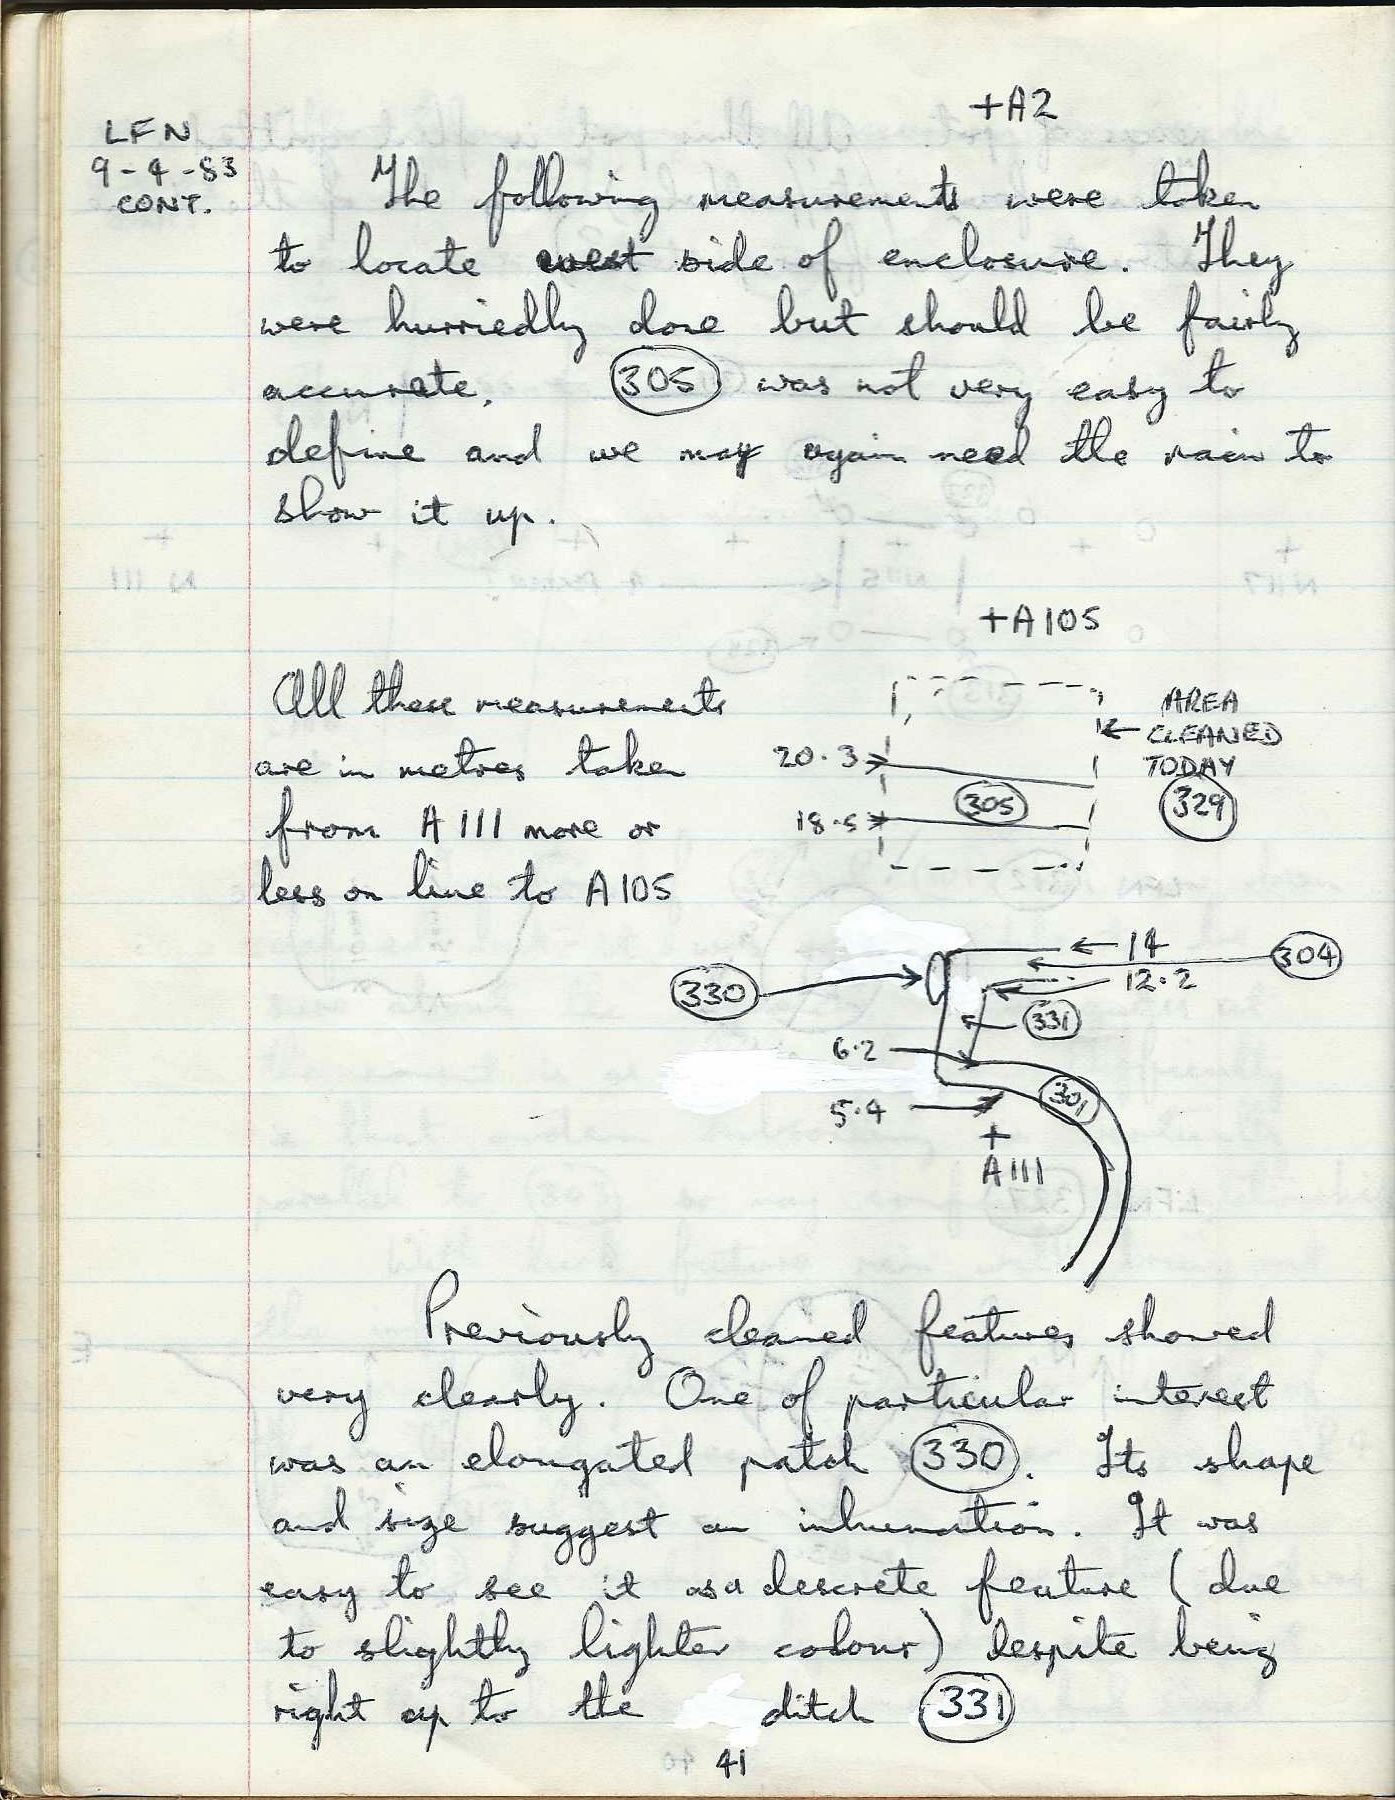 +A2
LFN
9-4-83
CONT.
The following measurements were taken
to locate west side of enclosure. They
were hurriedly done but should be fairly
accurate. 305 was not very easy to
define and we may again need the rain to
show it up.
+A105
All these measurements
are in metres taken
from A111 more or
less on line to A105
AREA
CLEANED
TODAY
329
20.3
305
18.5
14
304
330
12.2
331
6.2
301
5.4
+
A111
Previously cleaned features showed
very clearly. One of particular interest
was an elongated patch 330. Its shape
and size suggest an inhumation. It was
easy to see it as a descrete feature (due
to slightly lighter colour) despite being
right up to the ditch 331
41